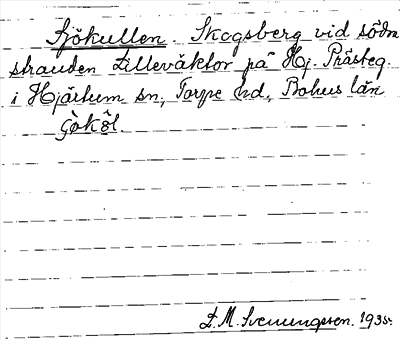 Sjökullen. Skogsberg vid södra
stranden Lilleväktor på Hj. Prästeg.
i Hjärtum sn, Torpe hd, Bohus län
L.M. Svenungsson. 1935.